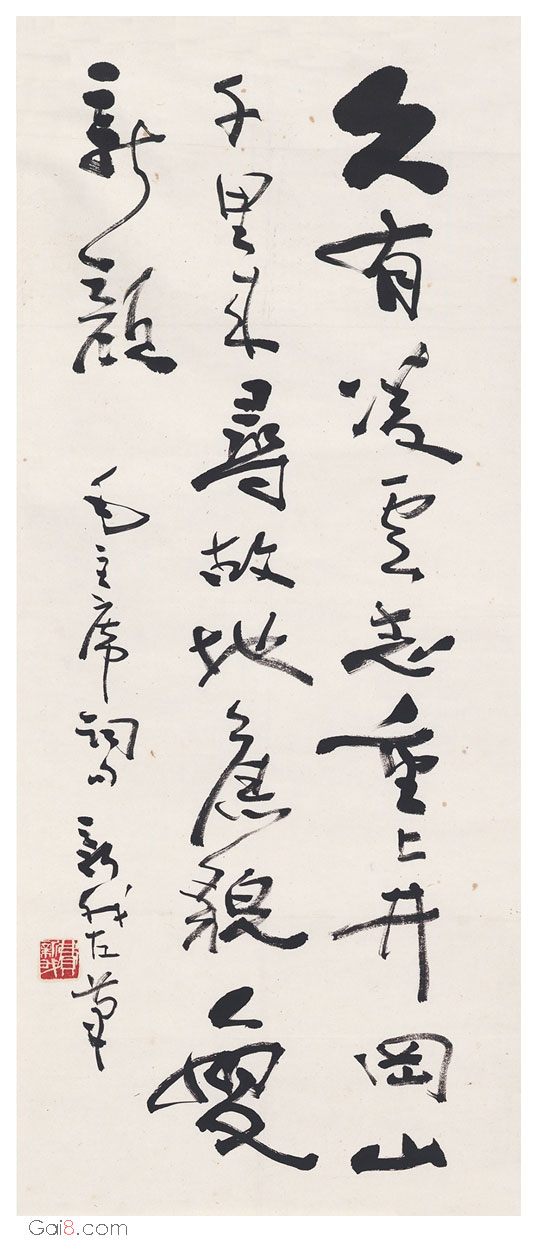 久有凌雲志重上井岡山
千里來尋故地舊貌變
新顏
毛主席詞句 新我左筆
費新我
Gai8.com